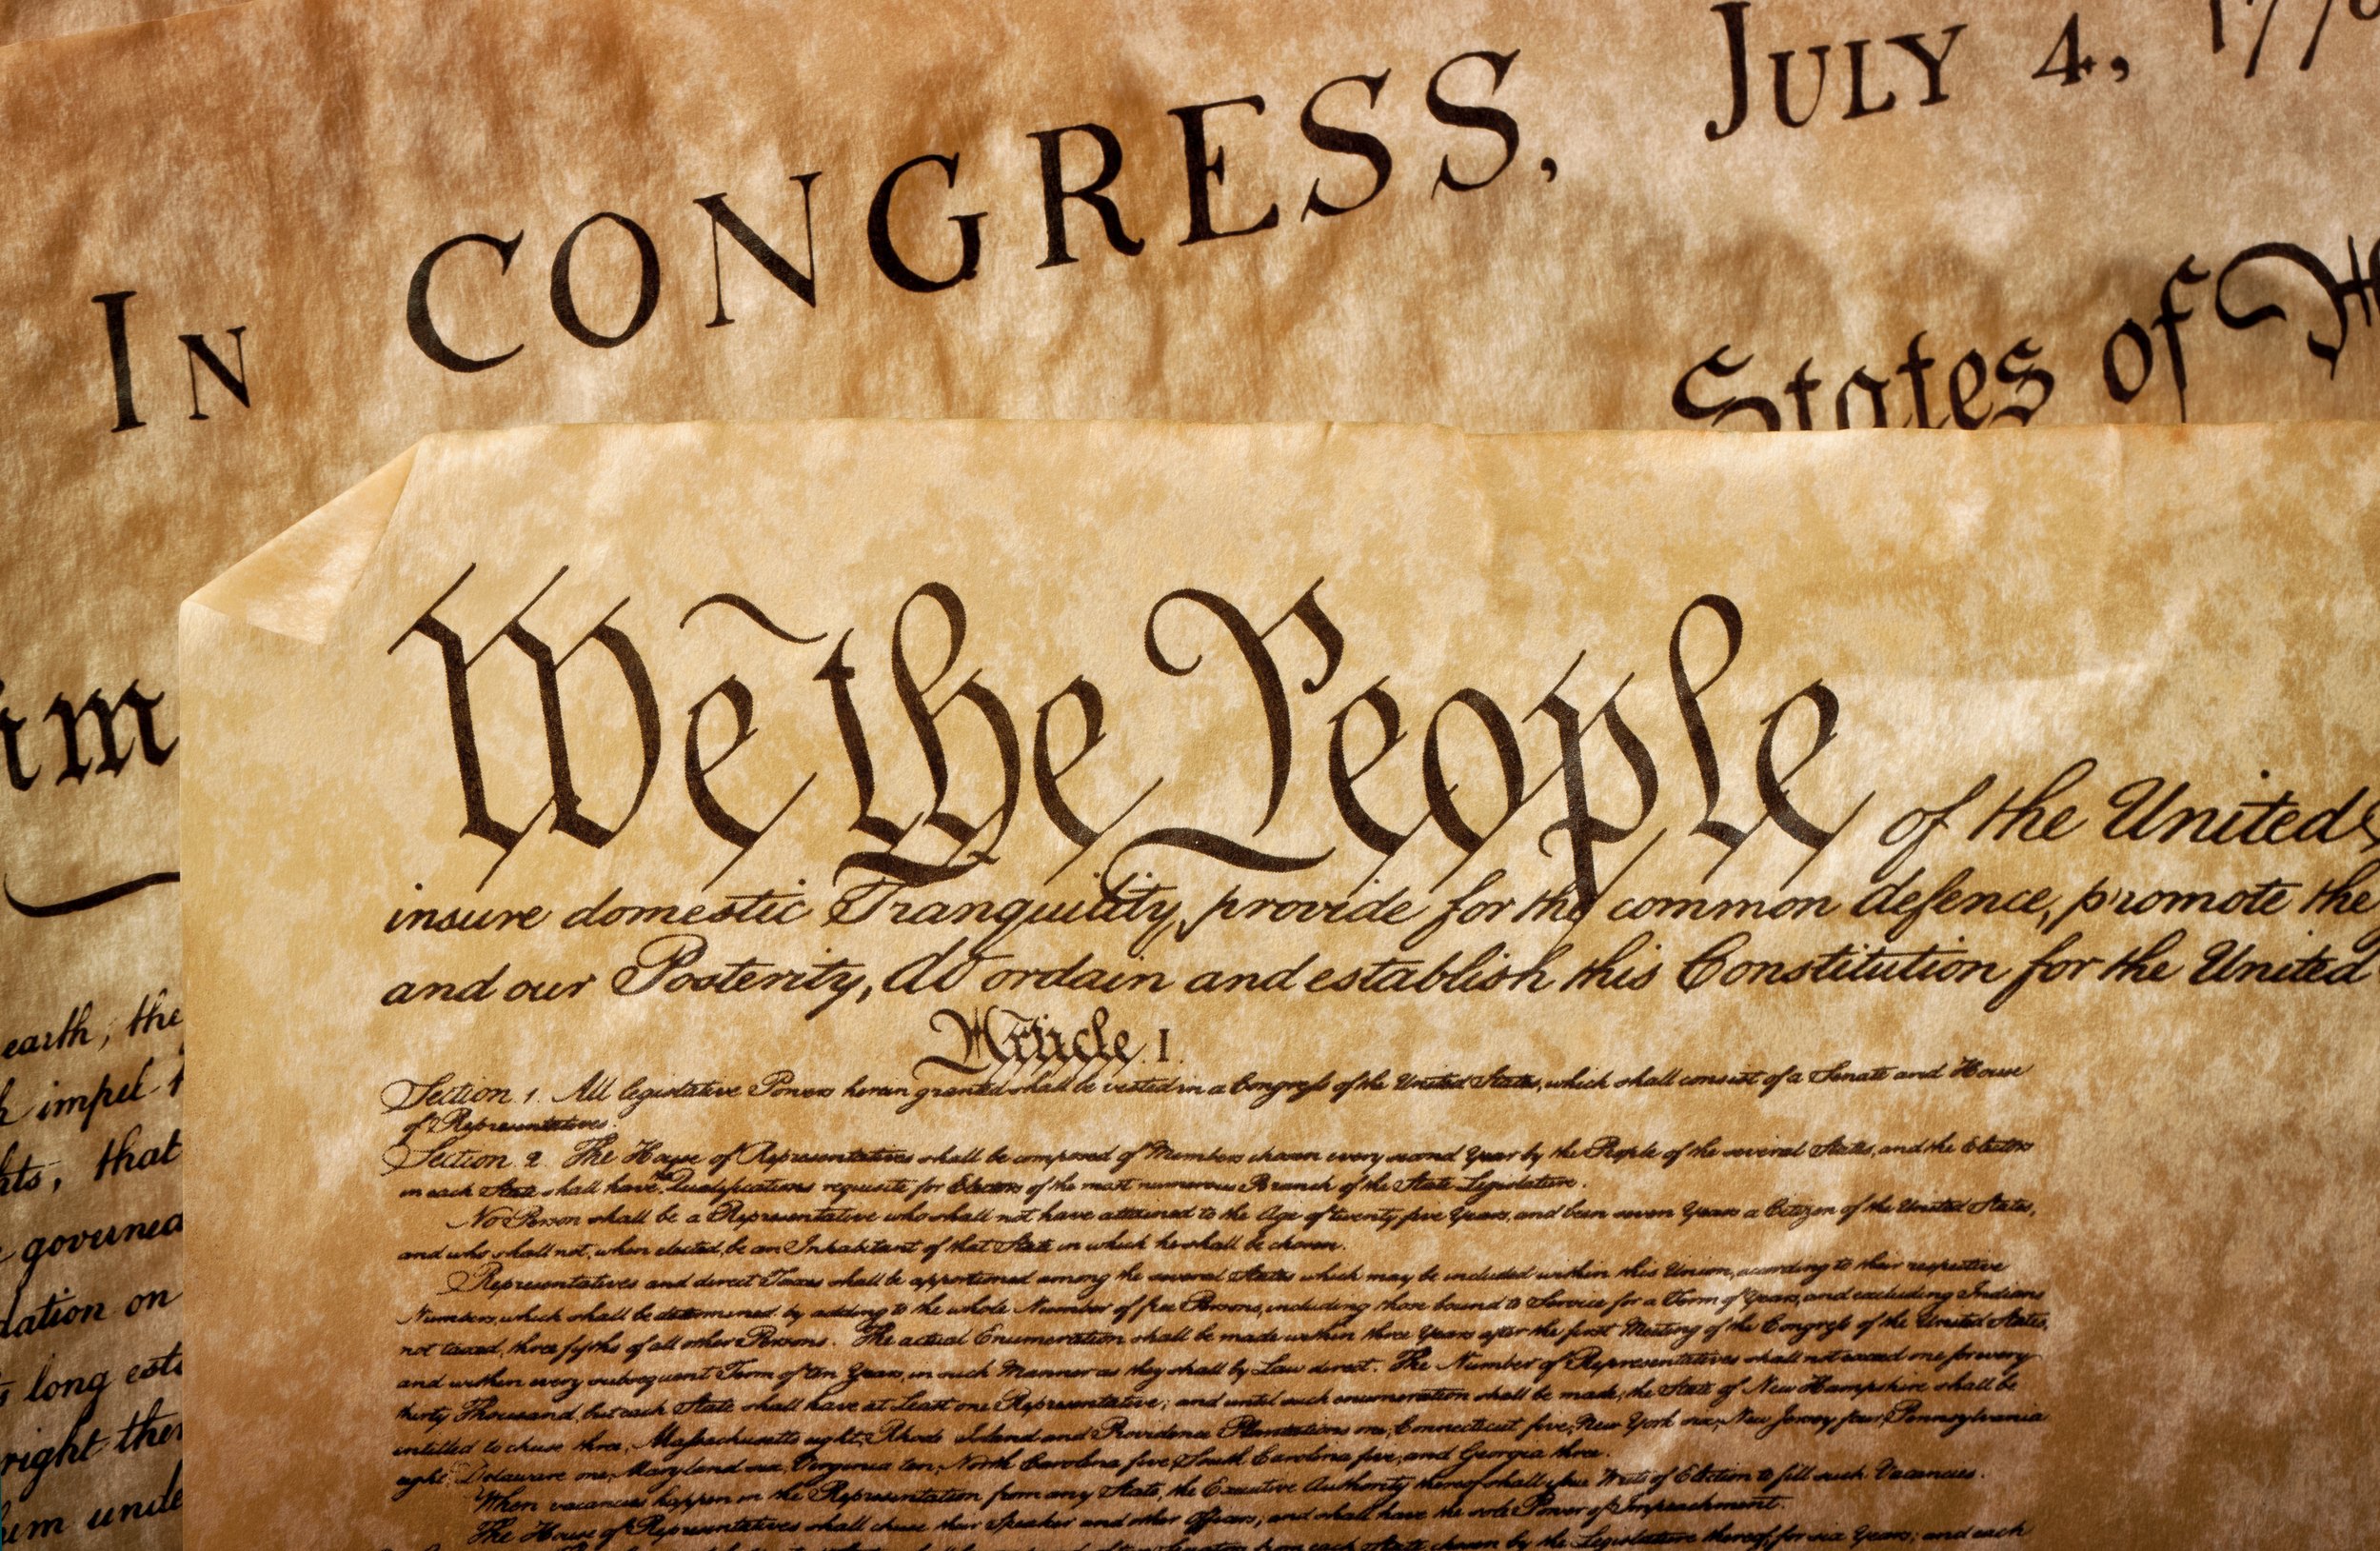 In CONGRESS, July 4, 177
States of
im
We the People of the United S
insure domestic Tranquility, provide for the common defence, promote the
and our Posterity, do ordain and establish this Constitution for the United
Article. I.
Section. 1. All legislative Powers herein granted shall be vested in a Congress of the United States, which shall consist of a Senate and House
of Representatives.
Section. 2. The House of Representatives shall be composed of Members chosen every second Year by the People of the several States, and the Electors
in each State shall have the Qualifications requisite for Electors of the most numerous Branch of the State Legislature.
No Person shall be a Representative who shall not have attained to the Age of twenty five Years, and been seven Years a Citizen of the United States,
and who shall not, when elected, be an Inhabitant of that State in which he shall be chosen.
Representatives and direct Taxes shall be apportioned among the several States which may be included within this Union, according to their respective
Numbers, which shall be determined by adding to the whole Number of free Persons, including those bound to Service for a Term of Years, and excluding Indians
not taxed, three fifths of all other Persons. The actual Enumeration shall be made within three Years after the first Meeting of the Congress of the United States,
and within every subsequent Term of ten Years, in such Manner as they shall by Law direct. The Number of Representatives shall not exceed one for every
thirty Thousand, but each State shall have at Least one Representative; and until such enumeration shall be made, the State of New Hampshire shall be
entitled to chuse three, Massachusetts eight, Rhode Island and Providence Plantations one, Connecticut five, New York six, New Jersey four, Pennsylvania
eight, Delaware one, Maryland six, Virginia ten, North Carolina five, South Carolina five, and Georgia three.
When vacancies happen in the Representation from any State, the Executive Authority thereof shall issue Writs of Election to fill such Vacancies.
The House of Representatives shall chuse their Speaker and other Officers; and shall have the sole Power of Impeachment.
from each State chosen by the Legislature thereof, for six Years; and each
earth, the
impel
that
governed
dation on
long esta
right
um unde